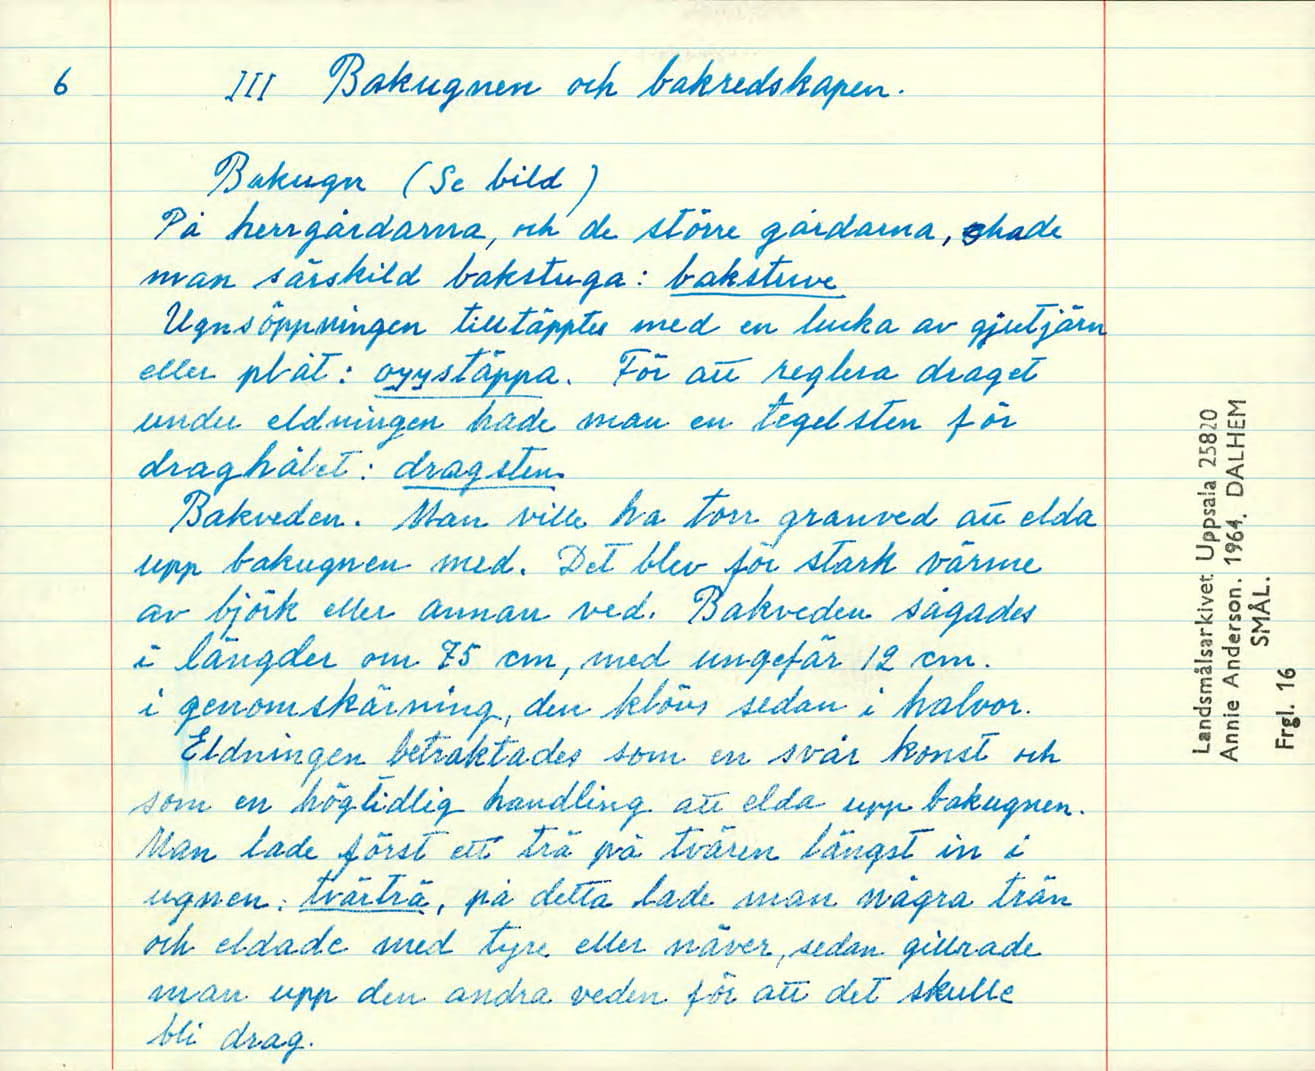 6
III Bakugnen och bakredskapen.
Bakugn (Se bild)
På herrgårdarna, och de större gårdarna, hade
man särskild bakstuga: bakstuve
Ugnsöppningen tilltäpptes med en lucka av gjutjärn
eller plåt: oyystäppa. För att reglera draget
under eldningen hade man en tegelsten för
draghålet: dragsten.
Bakveden. Man ville ha torr granved att elda
upp bakugnen med. Det blev för stark värme
av björk eller annan ved. Bakveden sågades
i längder om 75 cm, med ungefär 12 cm.
i genomskärning, den klövs sedan i halvor.
Eldningen betraktades som en svår konst och
som en högtidlig handling att elda upp bakugnen.
Man lade först ett trä på tvären längst in i
ugnen: tvärträ, på detta lade man några trän
och eldade med tyre eller näver, sedan gillrade
man upp den andra veden för att det skulle
bli drag.
Landsmålsarkivet Uppsala 25820
Annie Anderson. 1964. DALHEM
SMÅL.
Frgl. 16